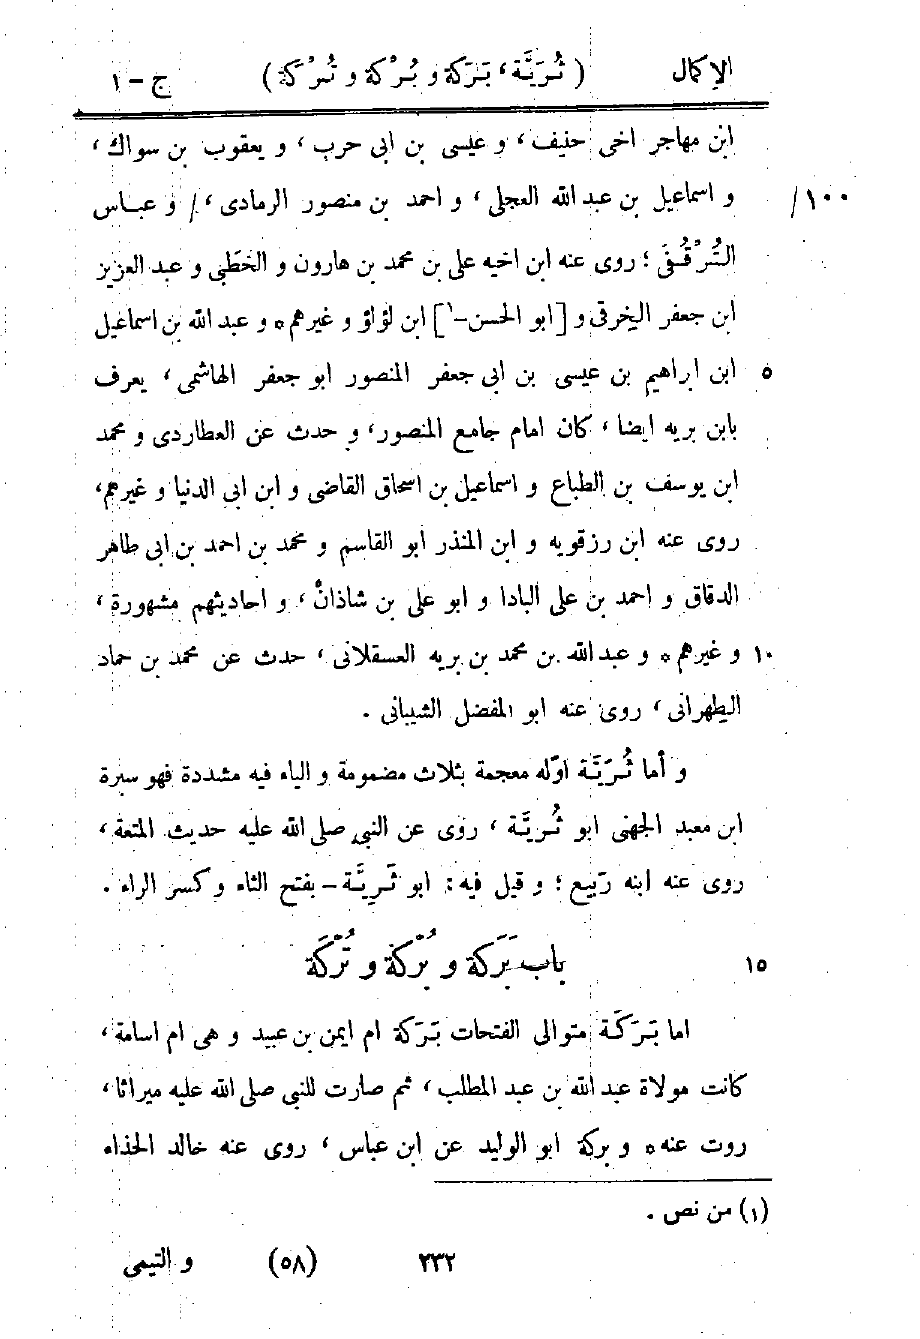 الإكمال ( ثُرَيَّة، بَرَكة و بُرْكة و تُرْكة ) ج - ١
ابن مهاجر اخى حنيف، و عيسى بن ابى حرب، و يعقوب بن سواك،
و اسماعيل بن عبد الله العجلى، و احمد بن منصور الرمادى، / و عباس /١٠٠
التُرْقُفى؛ روى عنه ابن اخيه على بن محمد بن هارون و الخطَبى و عبد العزيز
ابن جعفر الخرقى و [ابو الحسن-١] ابن لؤلؤ و غيرهم ٭ و عبد الله بن اسماعيل
ابن ابراهيم بن عيسى بن ابى جعفر المنصور ابو جعفر الهاشمى، يعرف ٥
بابن بريه ايضا، كان امام جامع المنصور، و حدث عن العطاردى و محمد
ابن يوسف بن الطباع و اسماعيل بن اسحاق القاضى و ابن ابى الدنيا و غيرهم،
روى عنه ابن رزقويه و ابن المنذر ابو القاسم و محمد بن احمد بن ابى طاهر
الدقاق و احمد بن على البادا و ابو على بن شاذان، و احاديثهم مشهورة،
و غيرهم ٭ و عبد الله بن محمد بن بريه العسقلانى، حدث عن محمد بن حماد ١٠
الطهرانى، روى عنه ابو المفضل الشيبانى .
و أما ثُرَيَّة اوّله معجمة بثلاث مضمومة و الياء فيه مشددة فهو سبرة
ابن معبد الجهنى ابو ثُريَّة، روى عن النبى صلى الله عليه حديث المتعة،
روى عنه ابنه ربيع؛ و قيل فيه: ابو ثَرِيَّة - بفتح الثاء و كسر الراء .
باب بَرَكة و بُرْكة و تُرْكَة ١٥
اما بَرَكَة متوالى الفتحات بَرَكة ام ايمن بن عبيد و هى ام اسامة،
كانت مولاة عبد الله بن عبد المطلب، ثم صارت للنبى صلى الله عليه ميراثا،
روت عنه ٭ و بركة ابو الوليد عن ابن عباس، روى عنه خالد الحذاء
(١) من نص .
٢٣٢ (٥٨) و التيمى